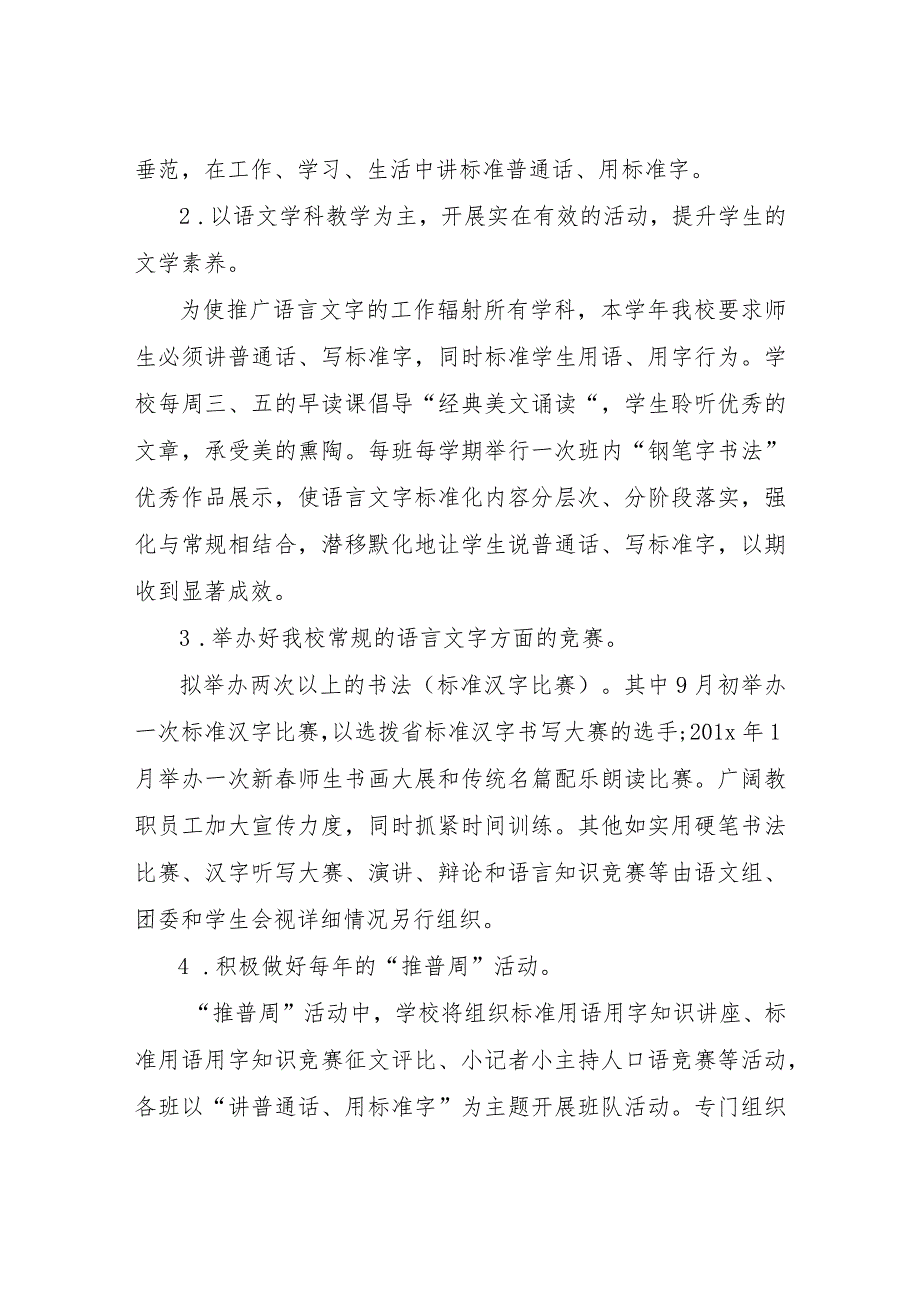 垂范，在工作、学习、生活中讲标准普通话、用标准字。
2.以语文学科教学为主，开展实在有效的活动，提升学生的
文学素养。
为使推广语言文字的工作辐射所有学科，本学年我校要求师
生必须讲普通话、写标准字，同时标准学生用语、用字行为。学
校每周三、五的早读课倡导“经典美文诵读“，学生聆听优秀的
文章，承受美的熏陶。每班每学期举行一次班内“钢笔字书法”
优秀作品展示，使语言文字标准化内容分层次、分阶段落实，强
化与常规相结合，潜移默化地让学生说普通话、写标准字，以期
收到显著成效。
3.举办好我校常规的语言文字方面的竞赛。
拟举办两次以上的书法（标准汉字比赛）。其中9月初举办
一次标准汉字比赛,以选拨省标准汉字书写大赛的选手;201x年1
月举办一次新春师生书画大展和传统名篇配乐朗读比赛。广阔教
职员工加大宣传力度，同时抓紧时间训练。其他如实用硬笔书法
比赛、汉字听写大赛、演讲、辩论和语言知识竞赛等由语文组、
团委和学生会视详细情况另行组织。
4 .积极做好每年的“推普周”活动。
“推普周”活动中，学校将组织标准用语用字知识讲座、标
准用语用字知识竞赛征文评比、小记者小主持人口语竞赛等活动,
各班以“讲普通话、用标准字”为主题开展班队活动。专门组织